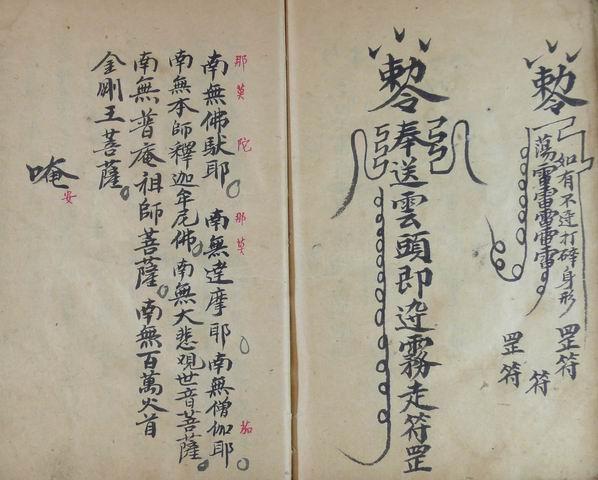 勅令
如有不遵打碎身形 罡符
符
罡符
勅令
奉送雲頭即迯霧走符罡
那莫 陀 那莫 茄
南無佛馱耶 南無達摩耶南無僧伽耶
南無本師釋迦牟尼佛 南無大悲觀世音菩薩
南無普庵祖師菩薩 南無百萬火首
金剛王菩薩
安
唵